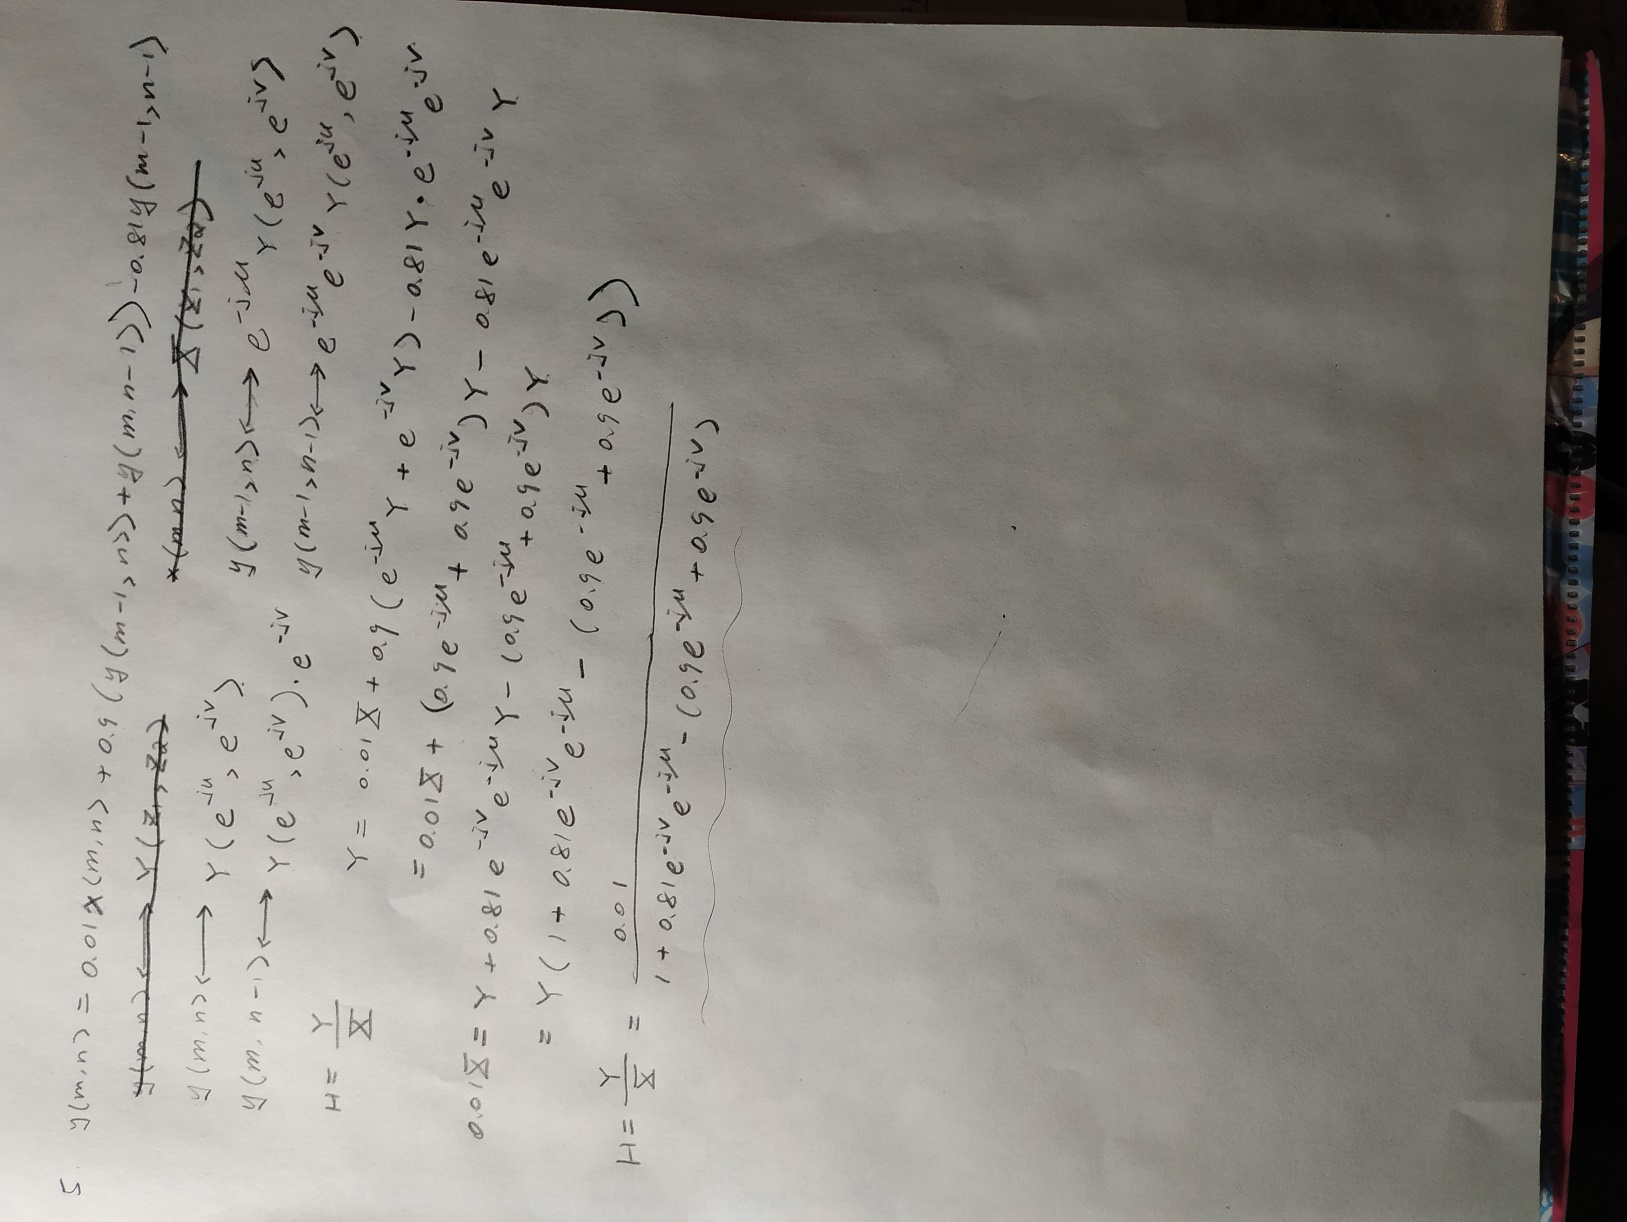 5
y(m,n) = 0.01x(m,n) + 0.9(y(m-1,n)) + y(m,n-1)) - 0.81y(m-1,n-1)
y(m,n) ⟷ Y(z1,z2) x(m,n) ⟷ X(z1,z2)
y(m,n) ⟷ Y(e^-ju, e^-jv) y(m-1,n) ⟷ e^-ju Y(e^ju, e^jv)
y(m,n-1) ⟷ Y(e^ju, e^jv)·e^-jv y(m-1,n-1) ⟷ e^-ju e^-jv Y(e^ju, e^jv)
H = Y/X
Y = 0.01X + 0.9(e^-ju Y + e^-jv Y) - 0.81Y·e^-ju e^-jv
= 0.01X + (0.9e^-ju + 0.9e^-jv)Y - 0.81e^-ju e^-jv Y
0.01X = Y + 0.81e^-jv e^-ju Y - (0.9e^-ju + 0.9e^-jv)Y
= Y(1 + 0.81e^-jv e^-ju - (0.9e^-ju + 0.9e^-jv))
H = Y/X = 0.01/(1 + 0.81e^-jv e^-ju - (0.9e^-ju + 0.9e^-jv)